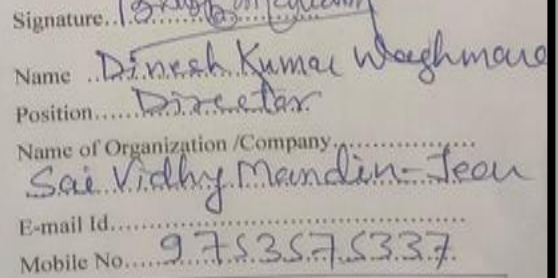 Signature..
Name ..Dinesh Kumar Waghmare
Position......Director
Name of Organization /Company..................
Sai Vidhy Mandin-Jeon
E-mail Id................................................
Mobile No......9753575337.